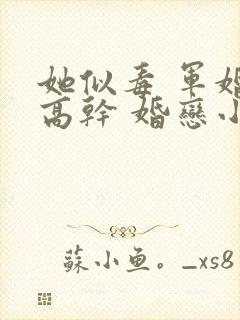 她似毒 軍婚
高幹 婚戀小
蘇小魚。_xs8